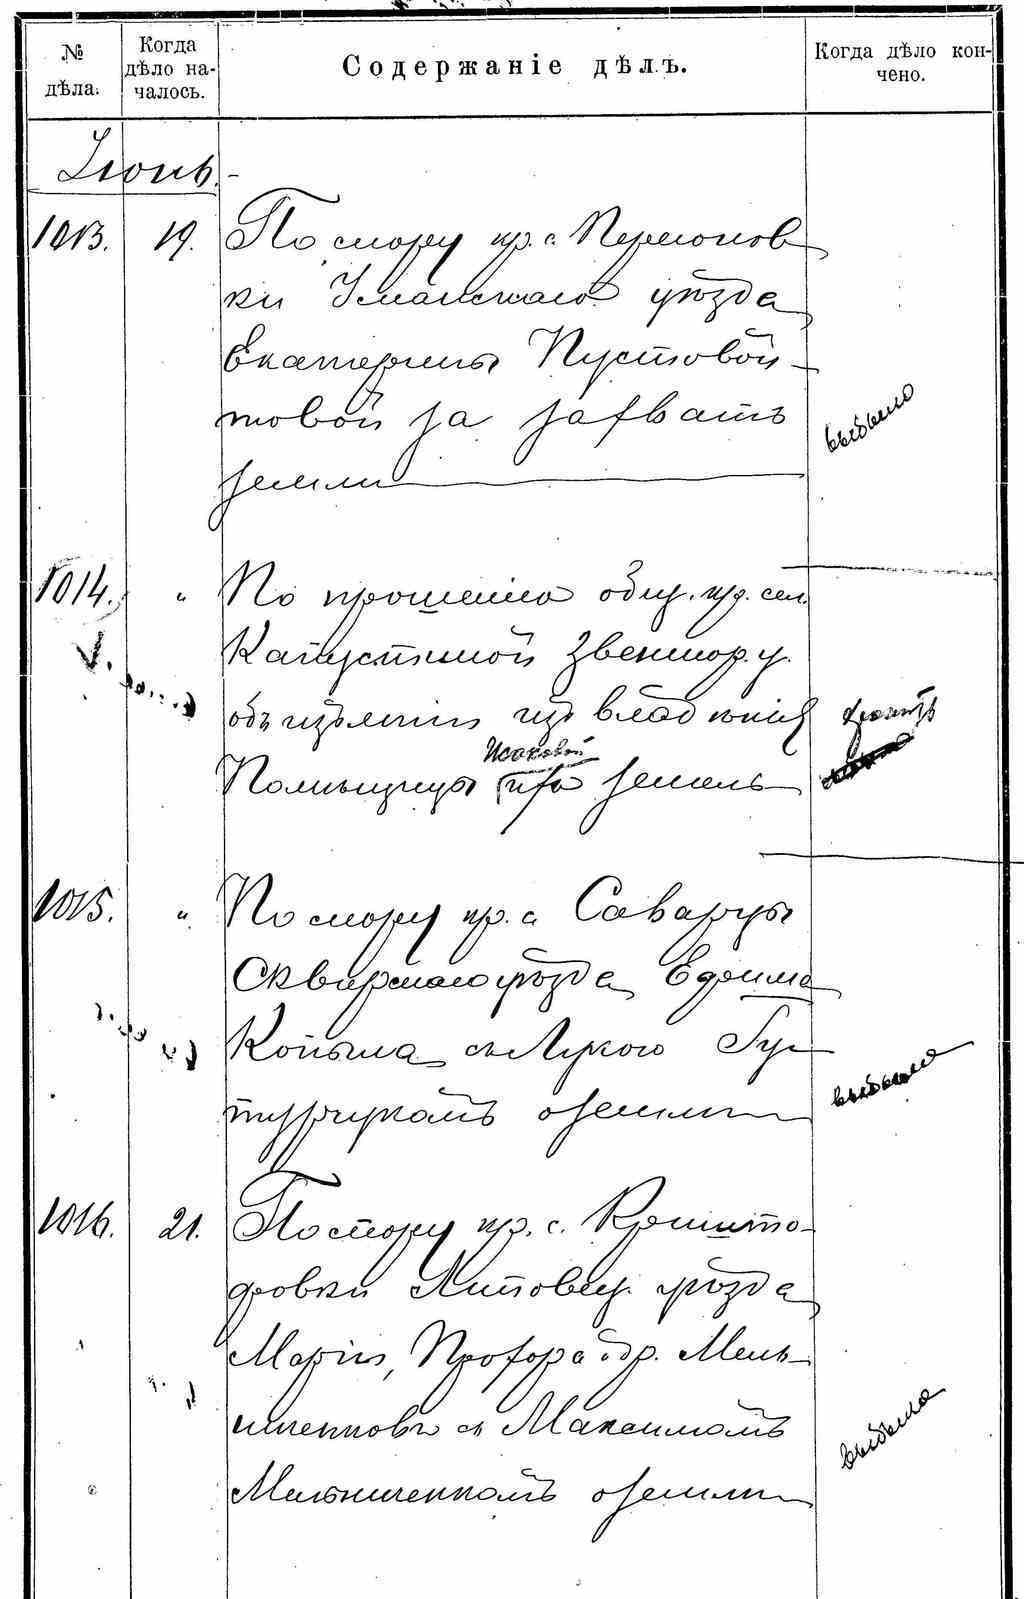 № дѣла.
Когда дѣло на-
чалось.
Содержаніе дѣлъ.
Когда дѣло кон-
чено.
Іюнь.
1013. 19. По спору кр. с. Пермонов
ки Уманскаго уѣзда
Екатерины Пустовой-
товой за захватъ
земли
выбыло
1014. " По прошенію общ. кр. сел.
Капустиной Звениго​р. у.
объ изъятіи изъ владѣнія
Исаковой
Помѣщицы земель
1015. " По спору кр. с. Саварцы
Сквирскаго уѣзда
Копыла съ Лукою Гу-
омъ о земли
выбыла
1016. 21. По спору кр. с. Кришто-
фовки Липовец. уѣзда
Маріи, Прохора и др. Мель-
ниченковъ съ Максимомъ
Мельниченкомъ о земли
выбыла